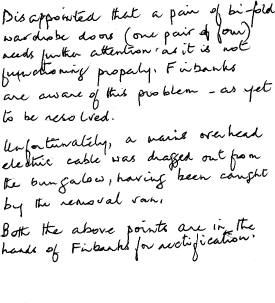 Disappointed that a pair of bi-fold
wardrobe doors (one pair of four)
needs further attention as it is not
functioning properly. Firbanks
are aware of this problem - as yet
to be resolved.
Unfortunately, a mains overhead
electric cable was dragged out from
the bungalow, having been caught
by the removal van.
Both the above points are in the
hands of Firbanks for rectification.